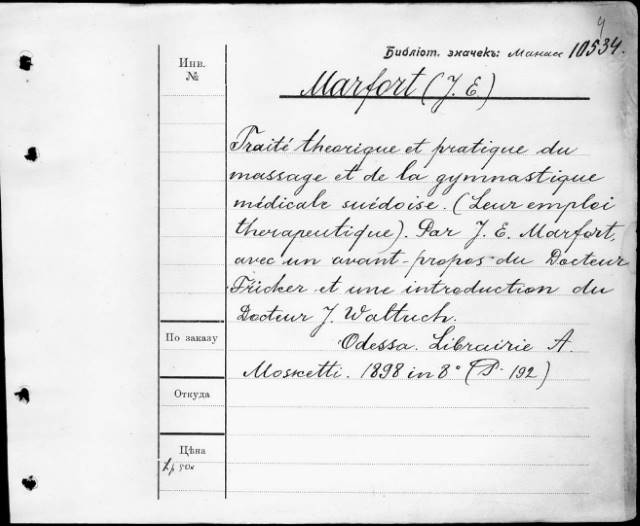 4
Библіот. значекъ: Манас 10534.
Инв.
№
Marfort (J. E.)
Traité theorique et pratique du
massage et de la gymnastique
médicale suédoise. (Leur emploi
therapeutique). Par J. E. Marfort,
avec un avant-propos du Docteur
Fricker et une introduction du
Docteur J. Waltuch.
По заказу
Odessa. Librairie A.
Moscetti. 1898 in 8° (P. 192)
Откуда
Цѣна